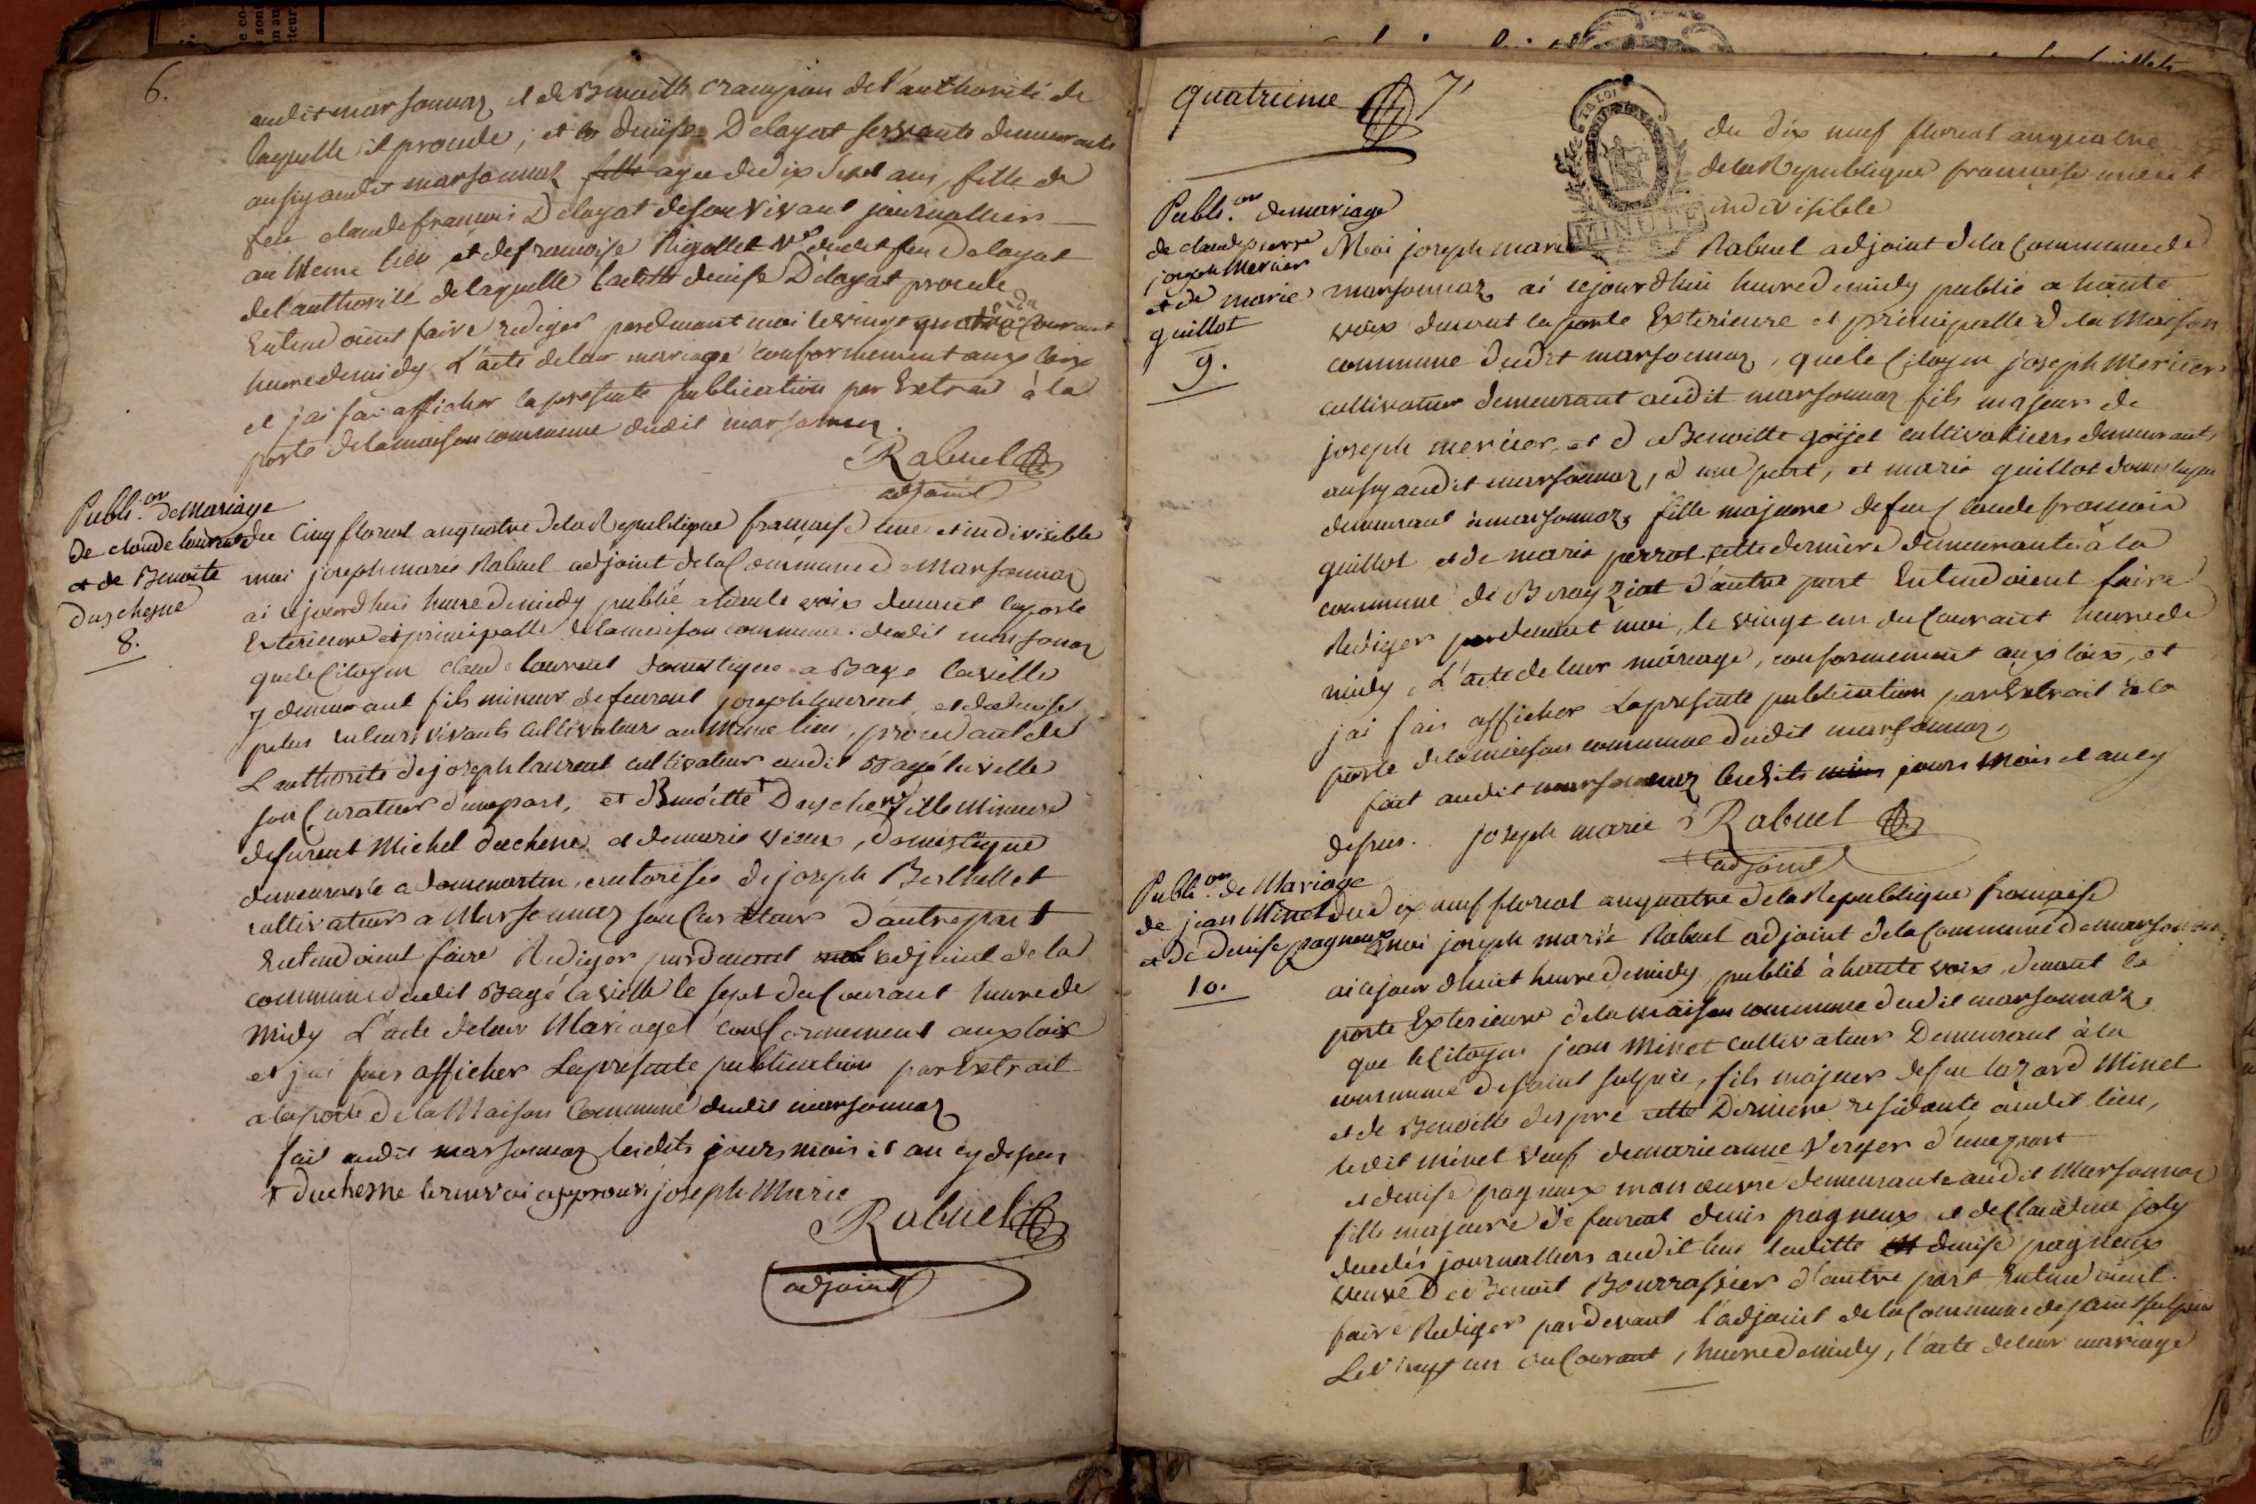 6.
audit marsonnaz et de Benoitte Crangion de l'authorité de
laquelle il procede, et Denise Delayat servante demeurante
aussy audit marsonnaz fille agee de dix sept ans, fille de
feu claude francois Delayat de son vivant journallier
au meme lieu et de francoise Rigollet Ve dudit feu Delayat
de l'authorité de laquelle laditte denise Delayat procede
Entendoient faire rediger pardevant moi le vingt quatre du Courant
heure de midy L'acte de leur mariage conformement aux loix
et jai fai afficher la presente publication par Extrait à la
porte de la maison commune dudit marsonnaz.
Rabuel
adjoint
Publi.on de Mariage
de claude laurent
et de Benoite
Duschesne
8.
du Cinq floreal an quatre de la Republique francaise une et indivisible
moi joseph marie Rabuel adjoint de la Commune de Marsonnaz
ai cejourdhui heure de midy publié a haute voix devant la porte
Exterieure et principalle de la maison commune dudit marsonnaz
que le Citoyen claude laurent domestique a Bage laville
y demeurant fils mineur de feurent joseph laurent et de denise
cultivateurs au meme lieu, procedant de
L'authorité de joseph laurent cultivateur audit Bagé laville
son Curateur d'une part, et Benoitte + Duschene fille Mineure
de feurent Michel duchene et de marie , domestique
demeurante a dommartin, autorisée de joseph Berthellet
cultivateur a Marsonnaz son Curateur d'autre part
Entendoient faire Rediger pardevant adjoint de la
commune dudit Bagé la ville le sept du Courant heure de
Midy L'acte de leur Mariage conformement aux loix
et jai fais afficher La presente publication par Extrait
a la porte de la Maison Commune dudit marsonnaz
fait audit marsonnaz lesdits jours mois et an cy depus
+ duchesne le renvoi approuvé joseph Marie
Rabuel
adjoint
quatrieme 7
LA LOI
MINUTE
du dix neuf floreal an quatre
de la Republique francaise une et
indivisible
Publi.on de mariage
de claude pierre
joseph Mercier
et de marie
guillot
9.
Moi joseph marie Rabuel adjoint de la Commune de
marsonnaz ai cejourdhui heure de midy publié a haute
voix devant la porte Exterieure et principalle de la Maison
commune dudit marsonnaz, que le Citoyen joseph Mercier
cultivateur demeurant audit marsonnaz fils majeur de
joseph mercier, et de Benoitte goijet cultivatiers demeurants
aussy audit marsonnaz, d'une part, et marie guillot domestique
demeurant à marsonnaz, fille majeure de feu Claude francois
guillot et de marie perrot cette derniere demeurante à la
commune de Bereyziat d'autre part Entendoient faire
Rediger pardevant moi, le vingt un du Courant heure de
midy, L'acte de leur mariage, conformement aux loix, et
jai fais afficher La presente publication par Extrait à la
porte de la maison commune dudit marsonnaz,
fait audit marsonnaz lesdits jours mois et an cy
depus. joseph marie Rabuel
adjoint
Publi.on de Mariage
de jean Minet
et de denise pagneux
10.
du dix neuf floreal an quatre de la Republique francaise
moi joseph marie Rabuel adjoint de la Commune de marsonnaz
ai cejour dhuit heure de midy, publié à haute voix, devant la
porte Exterieure de la maison commune dudit marsonnaz,
que le Citoyen jean Minet cultivateur Demeurant à la
commune de saint sulpice, fils majeur de feu lazard Minet
et de Benoitte despré cette Derniere residante audit lieu,
ledit minet veuf de marie anne Verger d'une part
et denise pagneux manoeuvre demeurante audit Marsonnaz
fille majeure de feurent denis pagneux et de Claudine joly
decedés journalliers audit lieu laditte denise pagneux
veuve de Benoit Bourrassier d'autre part Entendoient
faire Rediger pardevant l'adjoint de la Commune de saint sulpice
Le vingt un du Courant, heure de midy, l'acte de leur mariage